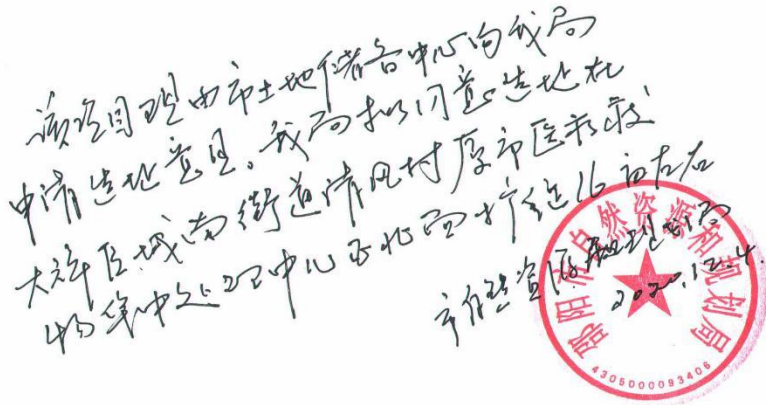 该项目现由市土地储备中心向我局
申请选址意见。我局拟同意选址在
大祥区城南街道清风村原市医疗废
物集中处理中心西北面扩征16亩左右
市自然资源和规划局
2020.12.4.
邵阳市自然资源和规划局
4305000093406